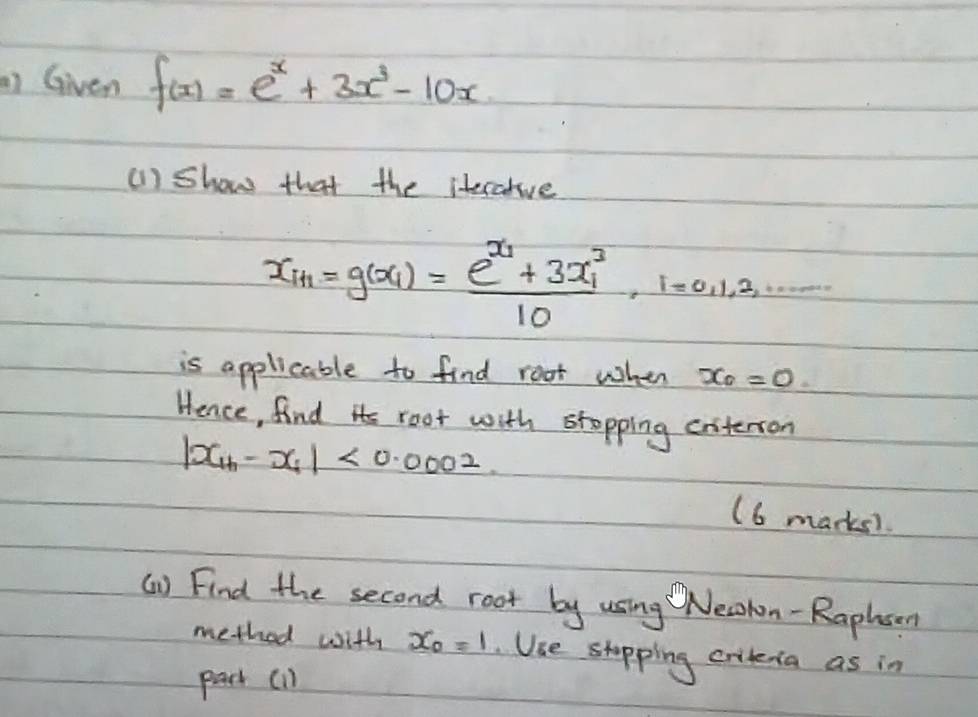 a) Given f(x) = e^x + 3x³ - 10x.
(i) Show that the iterative
x_{i+1} = g(x_i) = (e^{x_i} + 3x_i³) / 10, i = 0, 1, 2, .......
is applicable to find root when x₀ = 0.
Hence, find its root with stopping criterion
|x_{i+1} - x_i| < 0.0002.
(6 marks).
(ii) Find the second root by using Newton-Raphson
method with x₀ = 1. Use stopping criteria as in
part (i)